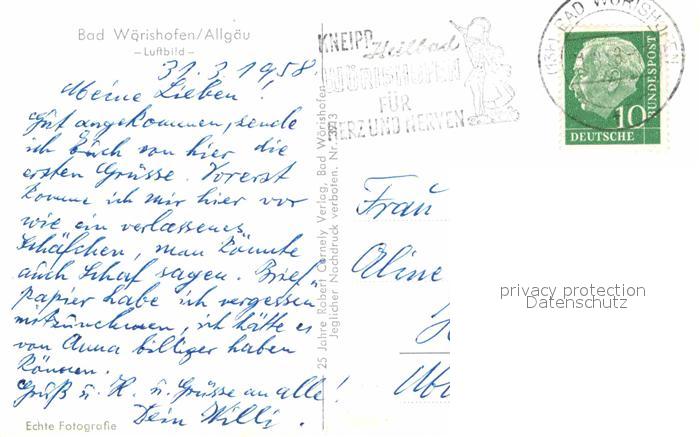 Bad Wörishofen/Allgäu
– Luftbild –
31.3.1958.
Meine Lieben!
Gut angekommen, sende
ich Euch von hier die
ersten Grüsse. Vorerst
komme ich mir hier vor
wie ein verlassenes
Schäfchen, man könnte
auch Schaf sagen. Brief-
papier habe ich vergessen
mitzunehmen, ich hätte es
von Anna billiger haben
können.
Gruß u. K. u. Grüsse an alle!
Dein Willi.
Echte Fotografie
25 Jahre Robert Cornely Verlag, Bad Wörishofen
Jeglicher Nachdruck verboten. Nr.
KNEIPP Heilbad
WÖRISHOFEN
FÜR
HERZ UND NERVEN
BAD WÖRISHOFEN
10
BUNDESPOST
DEUTSCHE
Frau
Aline
privacy protection
Datenschutz